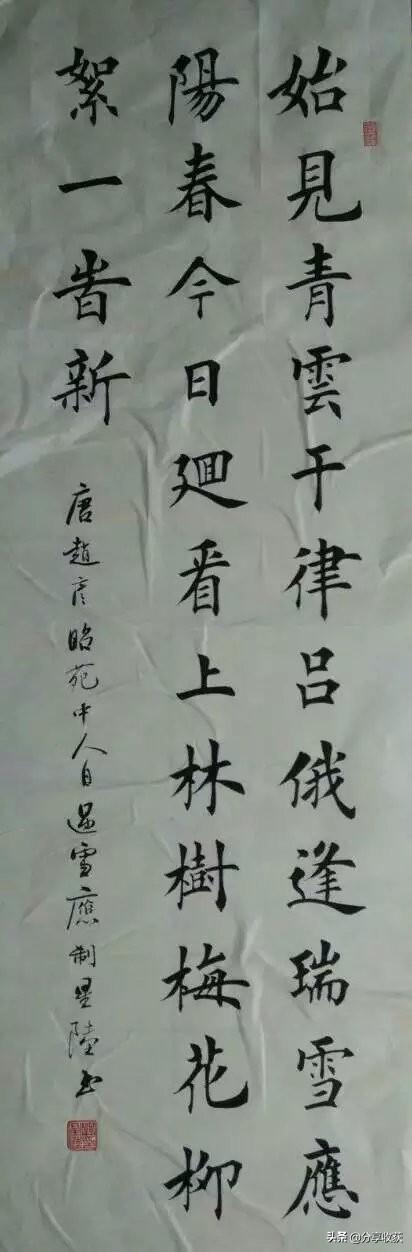 始見青雲干律吕俄逢瑞雪應
陽春今日廻看上林樹梅花柳
絮一旹新
唐趙彦昭苑中人日遇雪應制星陸书
头条@分享收获